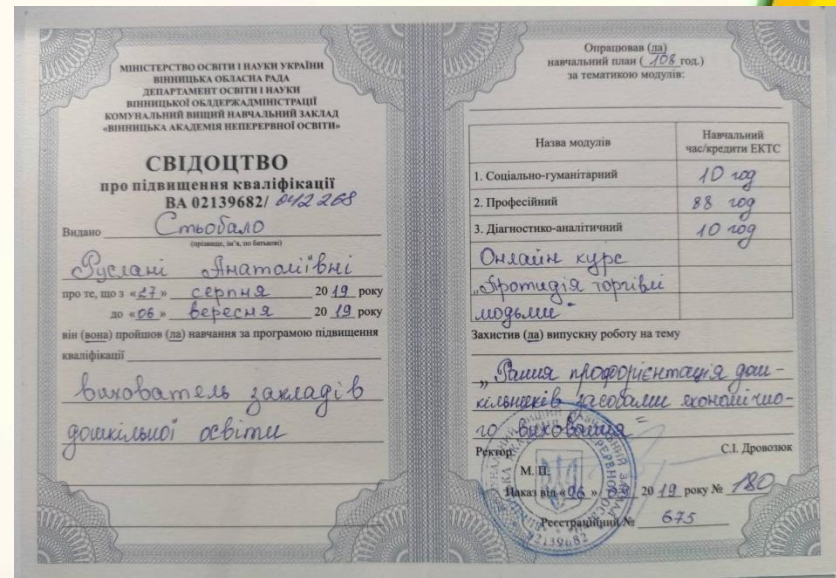 МІНІСТЕРСТВО ОСВІТИ І НАУКИ УКРАЇНИ
ВІННИЦЬКА ОБЛАСНА РАДА
ДЕПАРТАМЕНТ ОСВІТИ І НАУКИ
ВІННИЦЬКОЇ ОБЛДЕРЖАДМІНІСТРАЦІЇ
КОМУНАЛЬНИЙ ВИЩИЙ НАВЧАЛЬНИЙ ЗАКЛАД
«ВІННИЦЬКА АКАДЕМІЯ НЕПЕРЕРВНОЇ ОСВІТИ»
СВІДОЦТВО
про підвищення кваліфікації
ВА 02139682/ 042268
Видано Стьобало
(прізвище, ім'я, по батькові)
Руслані Анатоліївні
про те, що з «27» серпня 2019 року
до «06» вересня 2019 року
він (вона) пройшов (ла) навчання за програмою підвищення
кваліфікації
вихователь закладів
дошкільної освіти
Опрацював (ла)
навчальний план ( 108 год.)
за тематикою модулів:
Назва модулів Навчальний
час/кредити ЕКТС
1. Соціально-гуманітарний 10 год
2. Професійний 88 год
3. Діагностико-аналітичний 10 год
Онлайн курс
„Протидія торгівлі
людьми"
Захистив (ла) випускну роботу на тему
„Рання профорієнтація дош-
кільників засобами економічно-
го виховання"
Ректор: С.І. Дровозюк
М. П.
Наказ від «06» 09 2019 року № 180
Реєстраційний № 675
02139682